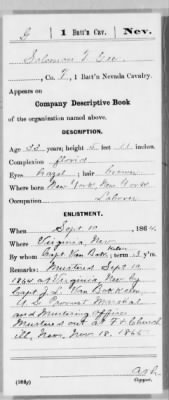 G | 1 Batt'n Cav. | Nev.
Solomon F Gee
, Co. F, 1 Batt'n Nevada Cavalry.
Appears on
Company Descriptive Book
of the organization named above.
DESCRIPTION.
Age 22 years; height 5 feet 11 inches.
Complexion florid
Eyes hazel; hair brown
Where born New York, New York
Occupation Laborer
ENLISTMENT.
When Sept 10, 1864.
Where Virginia, Nev
By whom Capt. Van Bokkelen; term 3 y'rs.
Remarks: Mustered Sept 10
1864 at Virginia, Nev by
Capt J. L. Van Bokkelen
U.S. Provost Marshal
and Mustering Officer
Mustered out at Ft Church
ill, Nev, Nov. 18, 1865
Copyist.